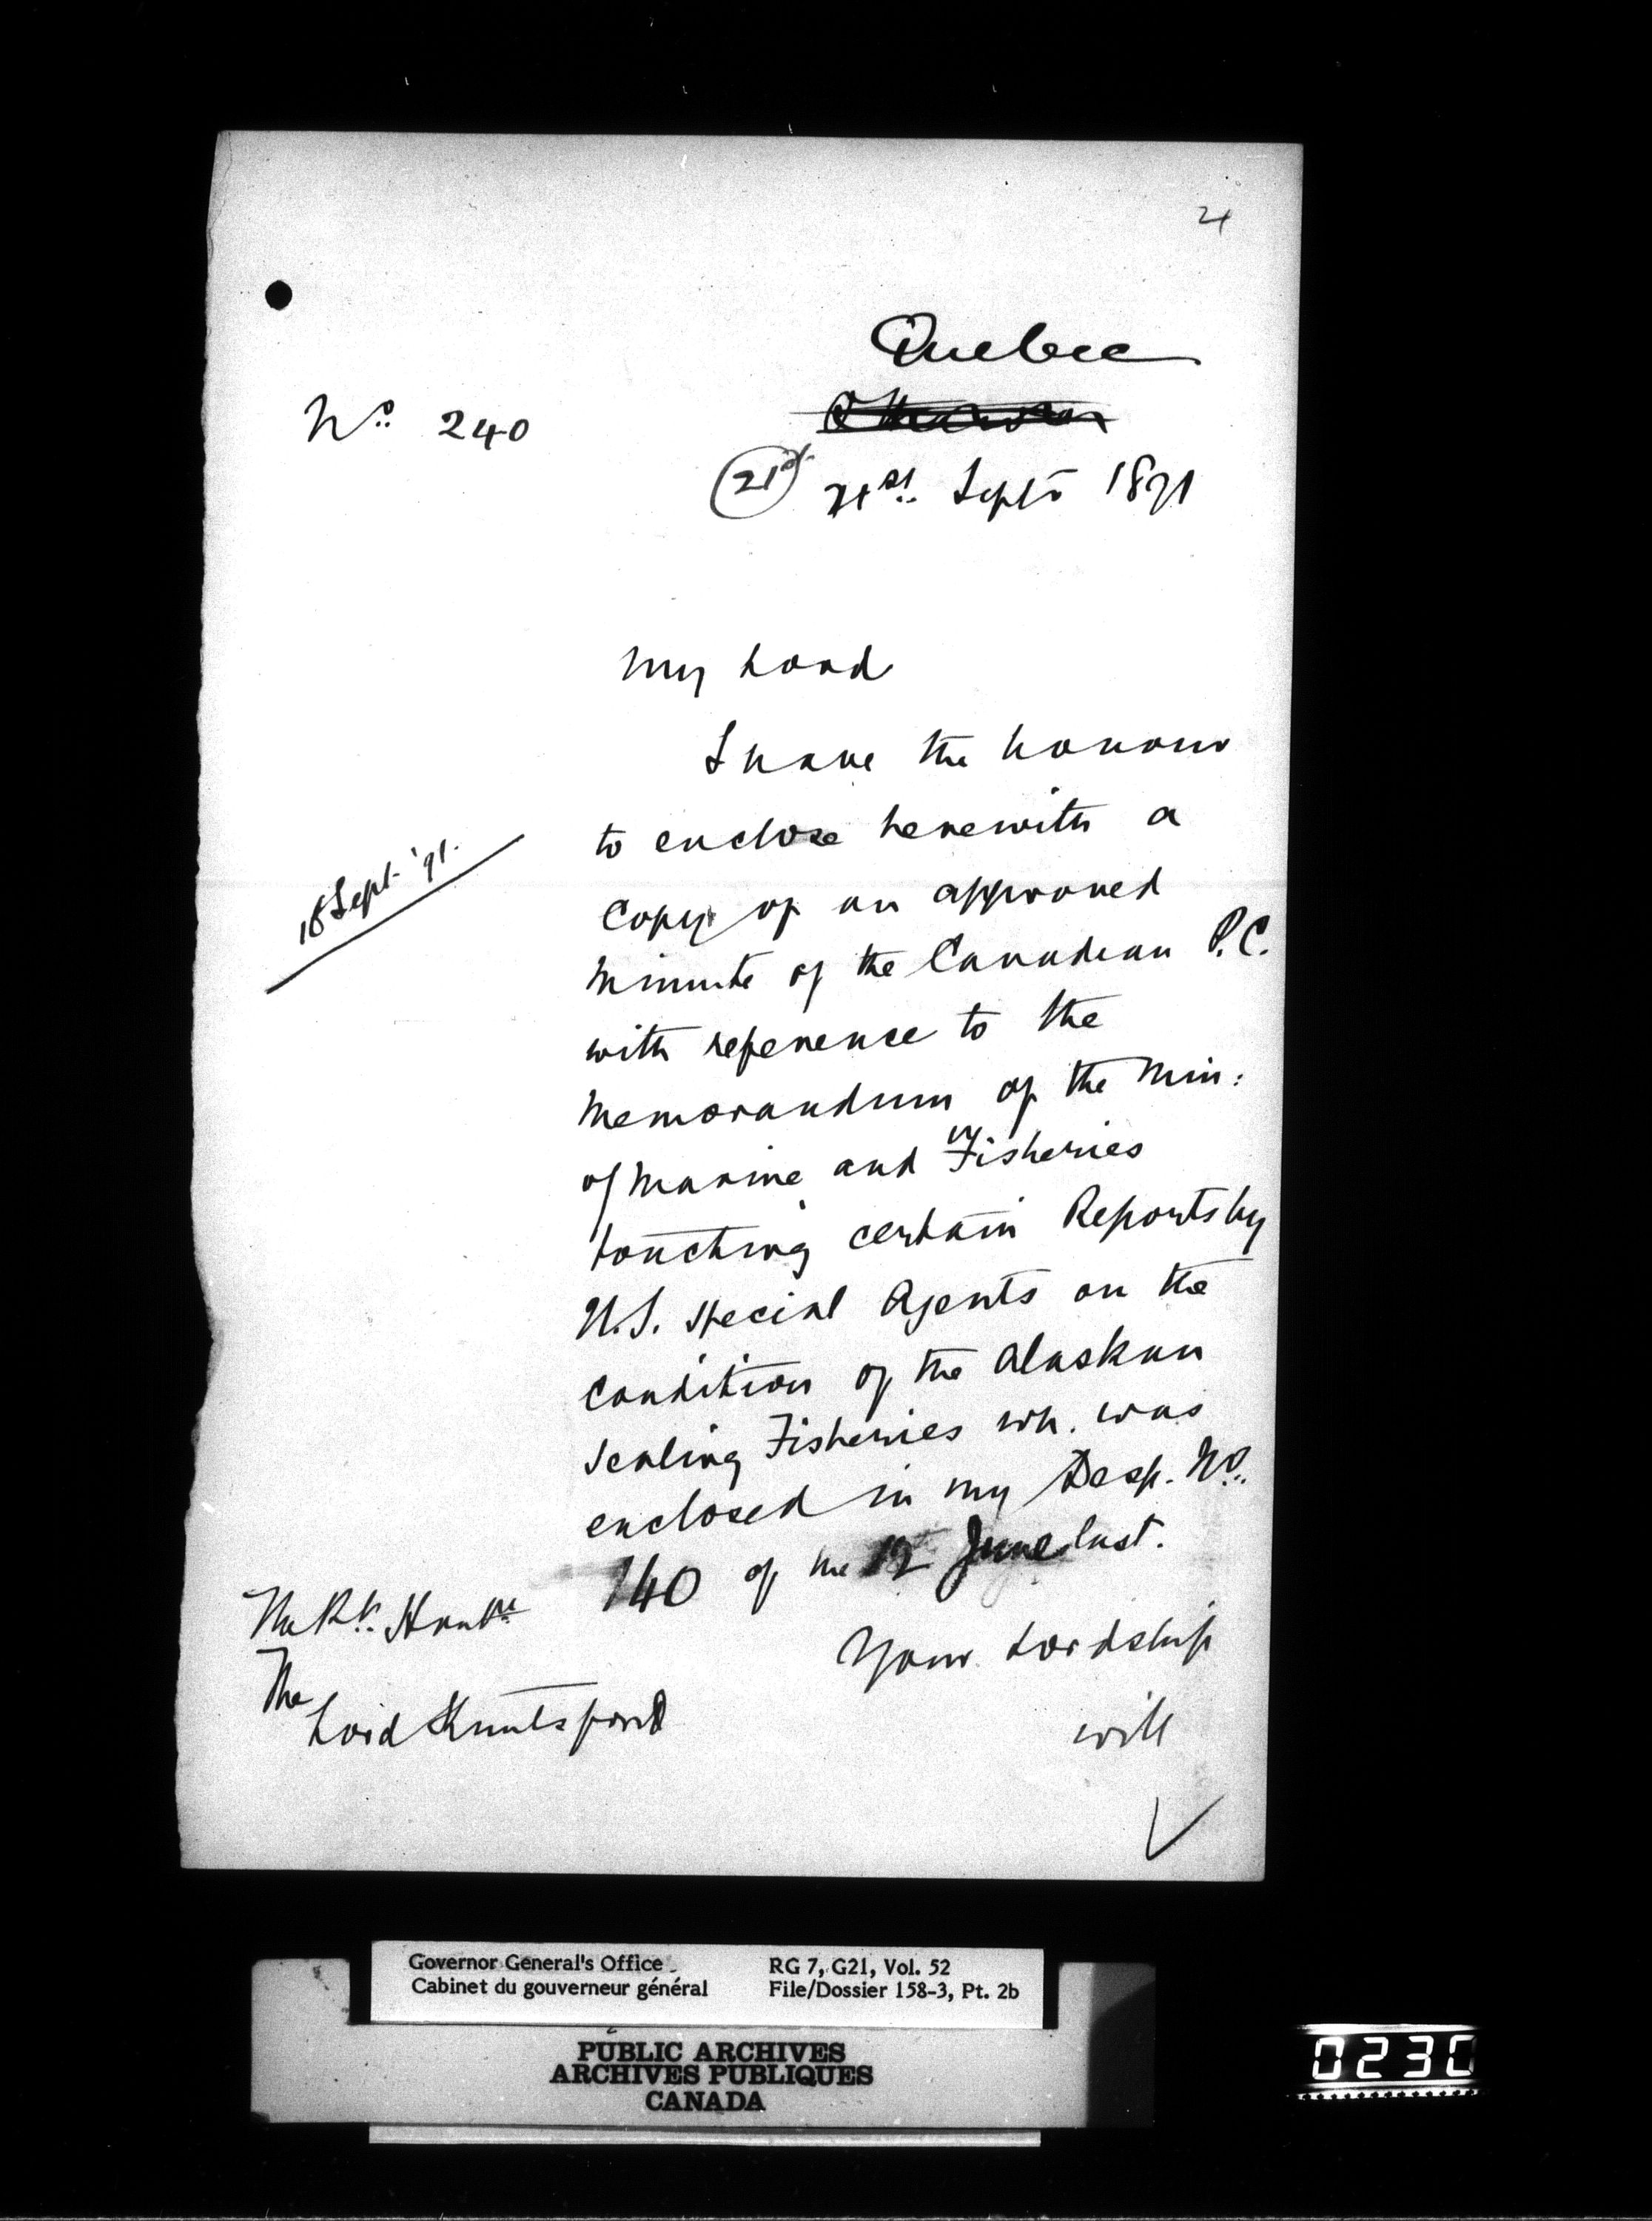 21
Quebec
No. 240
Ottawa
21st 21st. Septr 1891
My Lord
I have the honour
to enclose herewith a
18 Sept. '91.
Copy of an approved
Minute of the Canadian P.C.
with reference to the
Memorandum of the Min:
of Marine and Fisheries
touching certain Reports by
U.S. Special Agents on the
Condition of the Alaskan
Sealing Fisheries wh. was
enclosed in my Desp. No.
140 of the 12 June last.
The Rt. Honble
Your Lordship
The
Lord Knutsford
will
Governor General's Office RG 7, G21, Vol. 52
Cabinet du gouverneur général File/Dossier 158-3, Pt. 2b
PUBLIC ARCHIVES
ARCHIVES PUBLIQUES
CANADA
0230